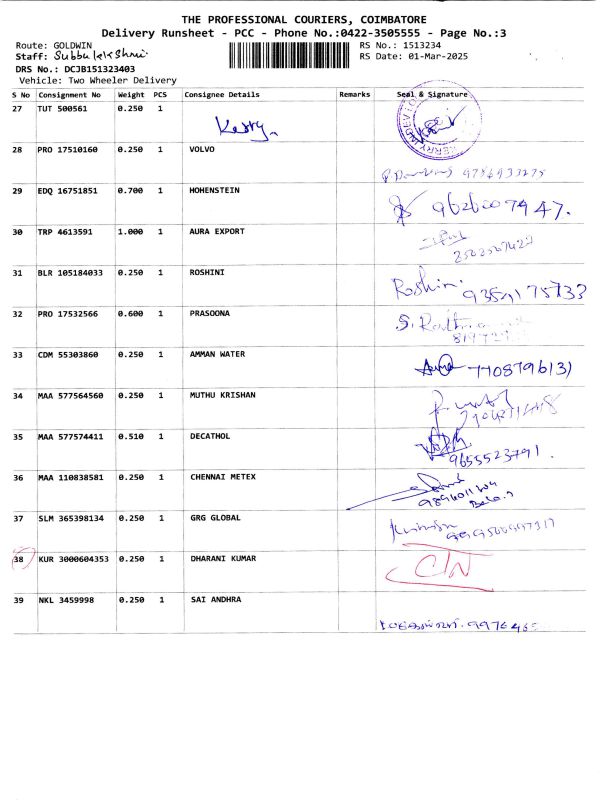 THE PROFESSIONAL COURIERS, COIMBATORE
Delivery Runsheet - PCC - Phone No.:0422-3505555 - Page No.:3
Route: GOLDWIN RS No.: 1513234
Staff: Subbulakshmi RS Date: 01-Mar-2025
DRS No.: DCJB151323403
Vehicle: Two Wheeler Delivery
S No Consignment No Weight PCS Consignee Details Remarks Seal & Signature
27 TUT 500561 0.250 1
Kerry
28 PRO 17510160 0.250 1 VOLVO
29 EDQ 16751851 0.700 1 HOHENSTEIN 9626007947.
30 TRP 4613591 1.000 1 AURA EXPORT
31 BLR 105184033 0.250 1 ROSHINI Roshini
32 PRO 17532566 0.600 1 PRASOONA
33 CDM 55303860 0.250 1 AMMAN WATER 7708796131
34 MAA 577564560 0.250 1 MUTHU KRISHAN
35 MAA 577574411 0.510 1 DECATHOL 9655523791.
36 MAA 110838581 0.250 1 CHENNAI METEX
37 SLM 365398134 0.250 1 GRG GLOBAL
38 KUR 3000604353 0.250 1 DHARANI KUMAR
39 NKL 3459998 0.250 1 SAI ANDHRA